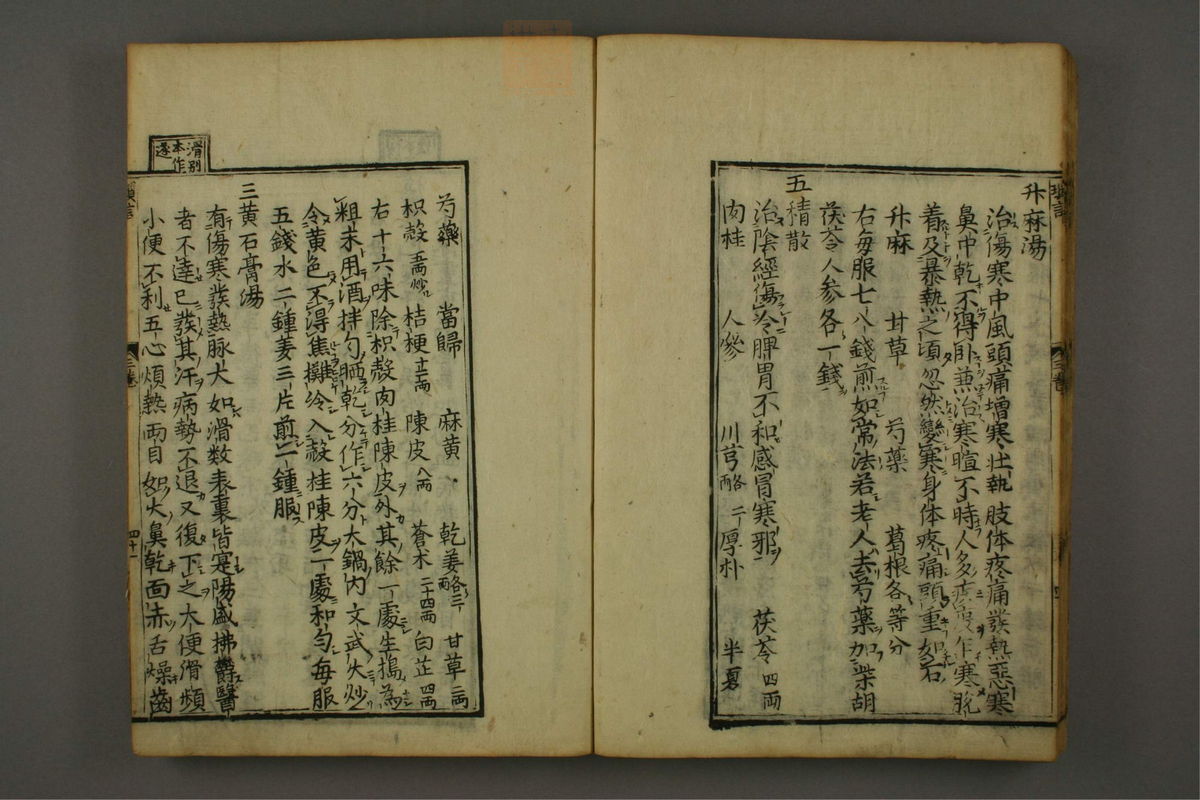 升麻湯
治傷寒中風頭痛増寒壮熱肢体疼痛發熱惡寒
鼻中乾不得臥兼治寒暄不時人多疾疫乍寒脱
着及暴熱之頃忽然變寒身体疼痛頭重如石
升麻 甘草 芍藥 葛根各等分
右毎服七八錢煎如常法若老人去芍藥加柴胡
茯苓人参各一錢
五積散
治陰經傷冷脾胃不和感冒寒邪 茯苓四両
肉桂 人參 川芎各二両 厚朴 半夏
芍藥 當歸 麻黄 乾姜各三両 甘草二両
枳殻五両炒 桔梗十二両 陳皮八両 蒼朮二十四両 白芷四両
右十六味除枳殻肉桂陳皮外其餘一處生搗為
粗末用酒拌匀晒乾分作六分大鍋内文武火炒
令黄色不得焦攤冷入殻桂陳皮一處和匀毎服
五錢水二鍾姜三片煎一鍾服
三黄石膏湯
有傷寒發熱脉大如滑数表裏皆寔陽盛拂欝醫
者不達已發其汗病勢不退又復下之大便滑頻
小便不利五心煩熱両目如火鼻乾面赤舌燥齒
滑別
本作
遂
三巻
四十一